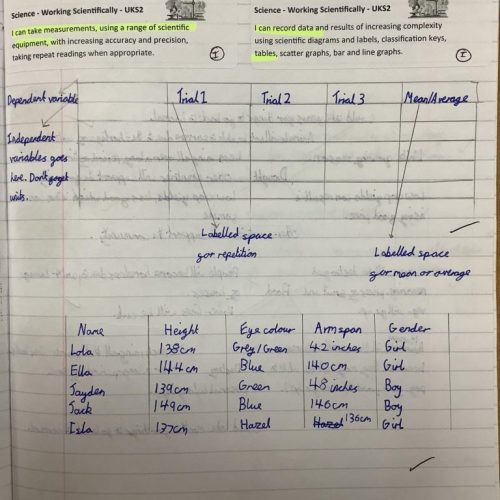 Science - Working Scientifically - UKS2
I can take measurements, using a range of scientific
equipment, with increasing accuracy and precision,
taking repeat readings when appropriate.
I
Science - Working Scientifically - UKS2
I can record data and results of increasing complexity
using scientific diagrams and labels, classification keys,
tables, scatter graphs, bar and line graphs.
I
Dependent variable Trial 1 Trial 2 Trial 3 Mean/Average
Independent
variables goes
here. Don't forget
units.
Labelled space
for repetition
Labelled space
for mean or average
Name Height Eye colour Armspan Gender
Lola 138cm Grey/Green 42 inches Girl
Ella 144cm Blue 140cm Girl
Jayden 139cm Green 48 inches Boy
Jack 149cm Blue 146cm Boy
Isla 137cm Hazel Hazel 136cm Girl